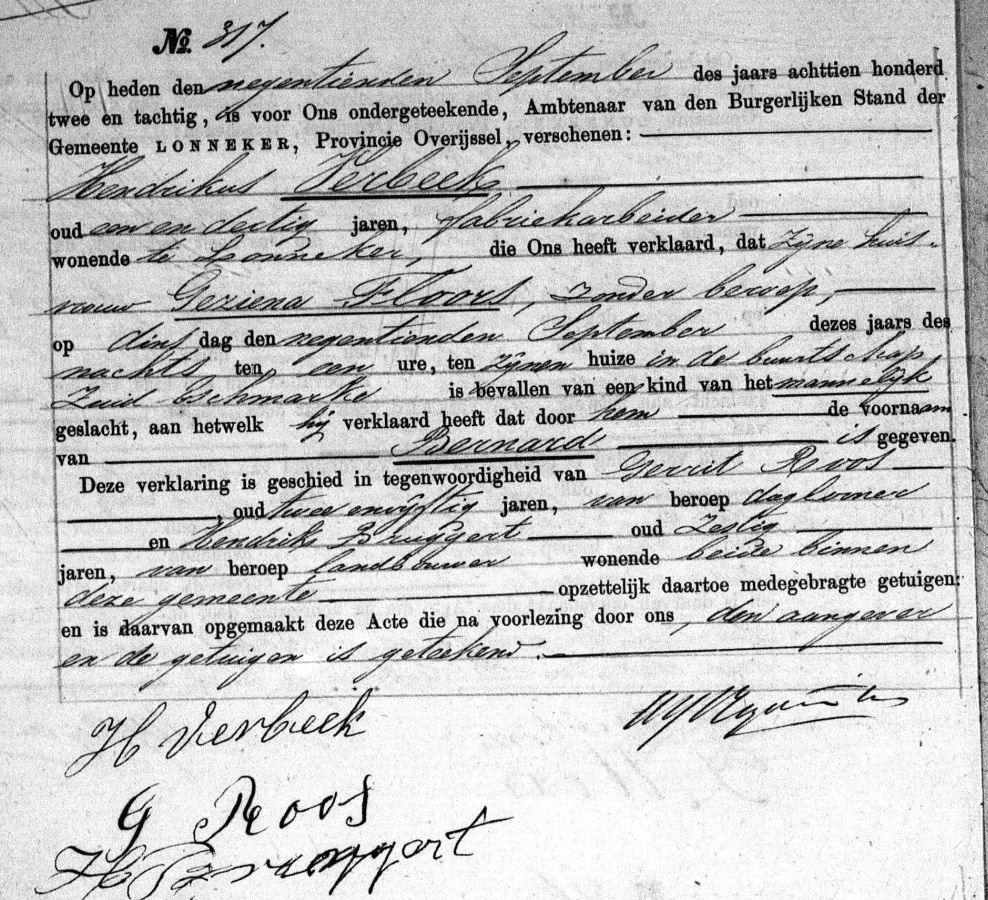 No. 317.
Op heden den negentienden September des jaars achttien honderd
twee en tachtig, is voor Ons ondergeteekende, Ambtenaar van den Burgerlijken Stand der
Gemeente LONNEKER, Provincie Overijssel, verschenen:
Hendrikus Verbeek
oud een en dertig jaren, fabriekarbeider
wonende te Lonneker, die Ons heeft verklaard, dat zijne huis-
vrouw Geziena Floors, zonder beroep,
op dins dag den negentienden September dezes jaars des
nachts, ten een ure, ten zijnen huize in de buurtschap
Zuid Eschmarke is bevallen van een kind van het mannelijk
geslacht, aan hetwelk hij verklaard heeft dat door hem de voornaam
van Bernard is gegeven.
Deze verklaring is geschied in tegenwoordigheid van Gerrit Roos
, oud twee envijftig jaren, van beroep daglooner
en Hendrik Bruggert oud Zestig
jaren, van beroep landbouwer wonende beide binnen
deze gemeente opzettelijk daartoe medegebragte getuigen:
en is daarvan opgemaakt deze Acte die na voorlezing door ons, den aangever
en de getuigen is geteekend.
H Verbeek
G Roos
H Bruggert